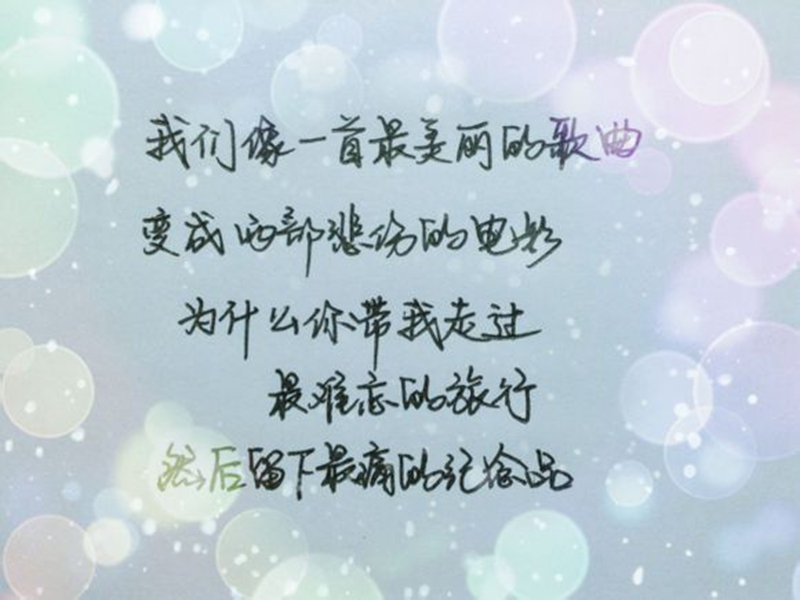 我们像一首最美丽的歌曲
变成两部悲伤的电影
为什么你带我走过
最难忘的旅行
然后留下最痛的纪念品